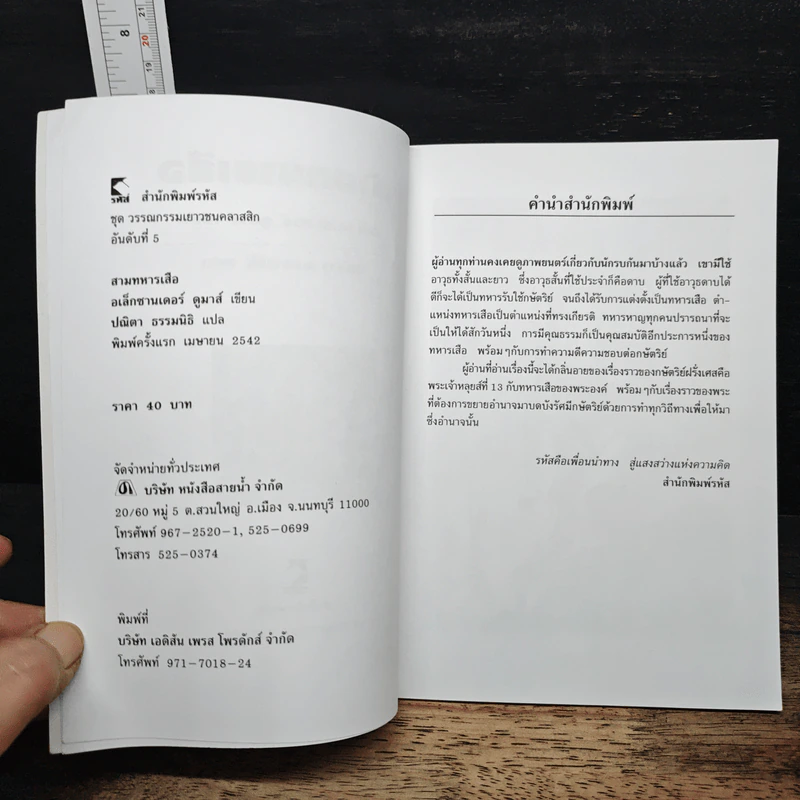 8
21
20
19
รหัส สำนักพิมพ์รหัส
ชุด วรรณกรรมเยาวชนคลาสสิก
อันดับที่ 5
สามทหารเสือ
อเล็กซานเดอร์ ดูมาส์ เขียน
ปณิตา ธรรมนิธิ แปล
พิมพ์ครั้งแรก เมษายน 2542
ราคา 40 บาท
จัดจำหน่ายทั่วประเทศ
บริษัท หนังสือสายน้ำ จำกัด
20/60 หมู่ 5 ต.สวนใหญ่ อ.เมือง จ.นนทบุรี 11000
โทรศัพท์ 967-2520-1, 525-0699
โทรสาร 525-0374
พิมพ์ที่
บริษัท เอดิสัน เพรส โพรดักส์ จำกัด
โทรศัพท์ 971-7018-24
คำนำสำนักพิมพ์
ผู้อ่านทุกท่านคงเคยดูภาพยนตร์เกี่ยวกับนักรบกันมาบ้างแล้ว เขามีใช้
อาวุธทั้งสั้นและยาว ซึ่งอาวุธสั้นที่ใช้ประจำก็คือดาบ ผู้ที่ใช้อาวุธดาบได้
ดีก็จะได้เป็นทหารรับใช้กษัตริย์ จนถึงได้รับการแต่งตั้งเป็นทหารเสือ ตำ-
แหน่งทหารเสือเป็นตำแหน่งที่ทรงเกียรติ ทหารหาญทุกคนปรารถนาที่จะ
เป็นให้ได้สักวันหนึ่ง การมีคุณธรรมก็เป็นคุณสมบัติอีกประการหนึ่งของ
ทหารเสือ พร้อมๆกับการทำความดีความชอบต่อกษัตริย์
ผู้อ่านที่อ่านเรื่องนี้จะได้กลิ่นอายของเรื่องราวของกษัตริย์ฝรั่งเศสคือ
พระเจ้าหลุยส์ที่ 13 กับทหารเสือของพระองค์ พร้อมๆกับเรื่องราวของพระ
ที่ต้องการขยายอำนาจมาบดบังรัศมีกษัตริย์ด้วยการทำทุกวิถีทางเพื่อให้มา
ซึ่งอำนาจนั้น
รหัสคือเพื่อนนำทาง สู่แสงสว่างแห่งความคิด
สำนักพิมพ์รหัส